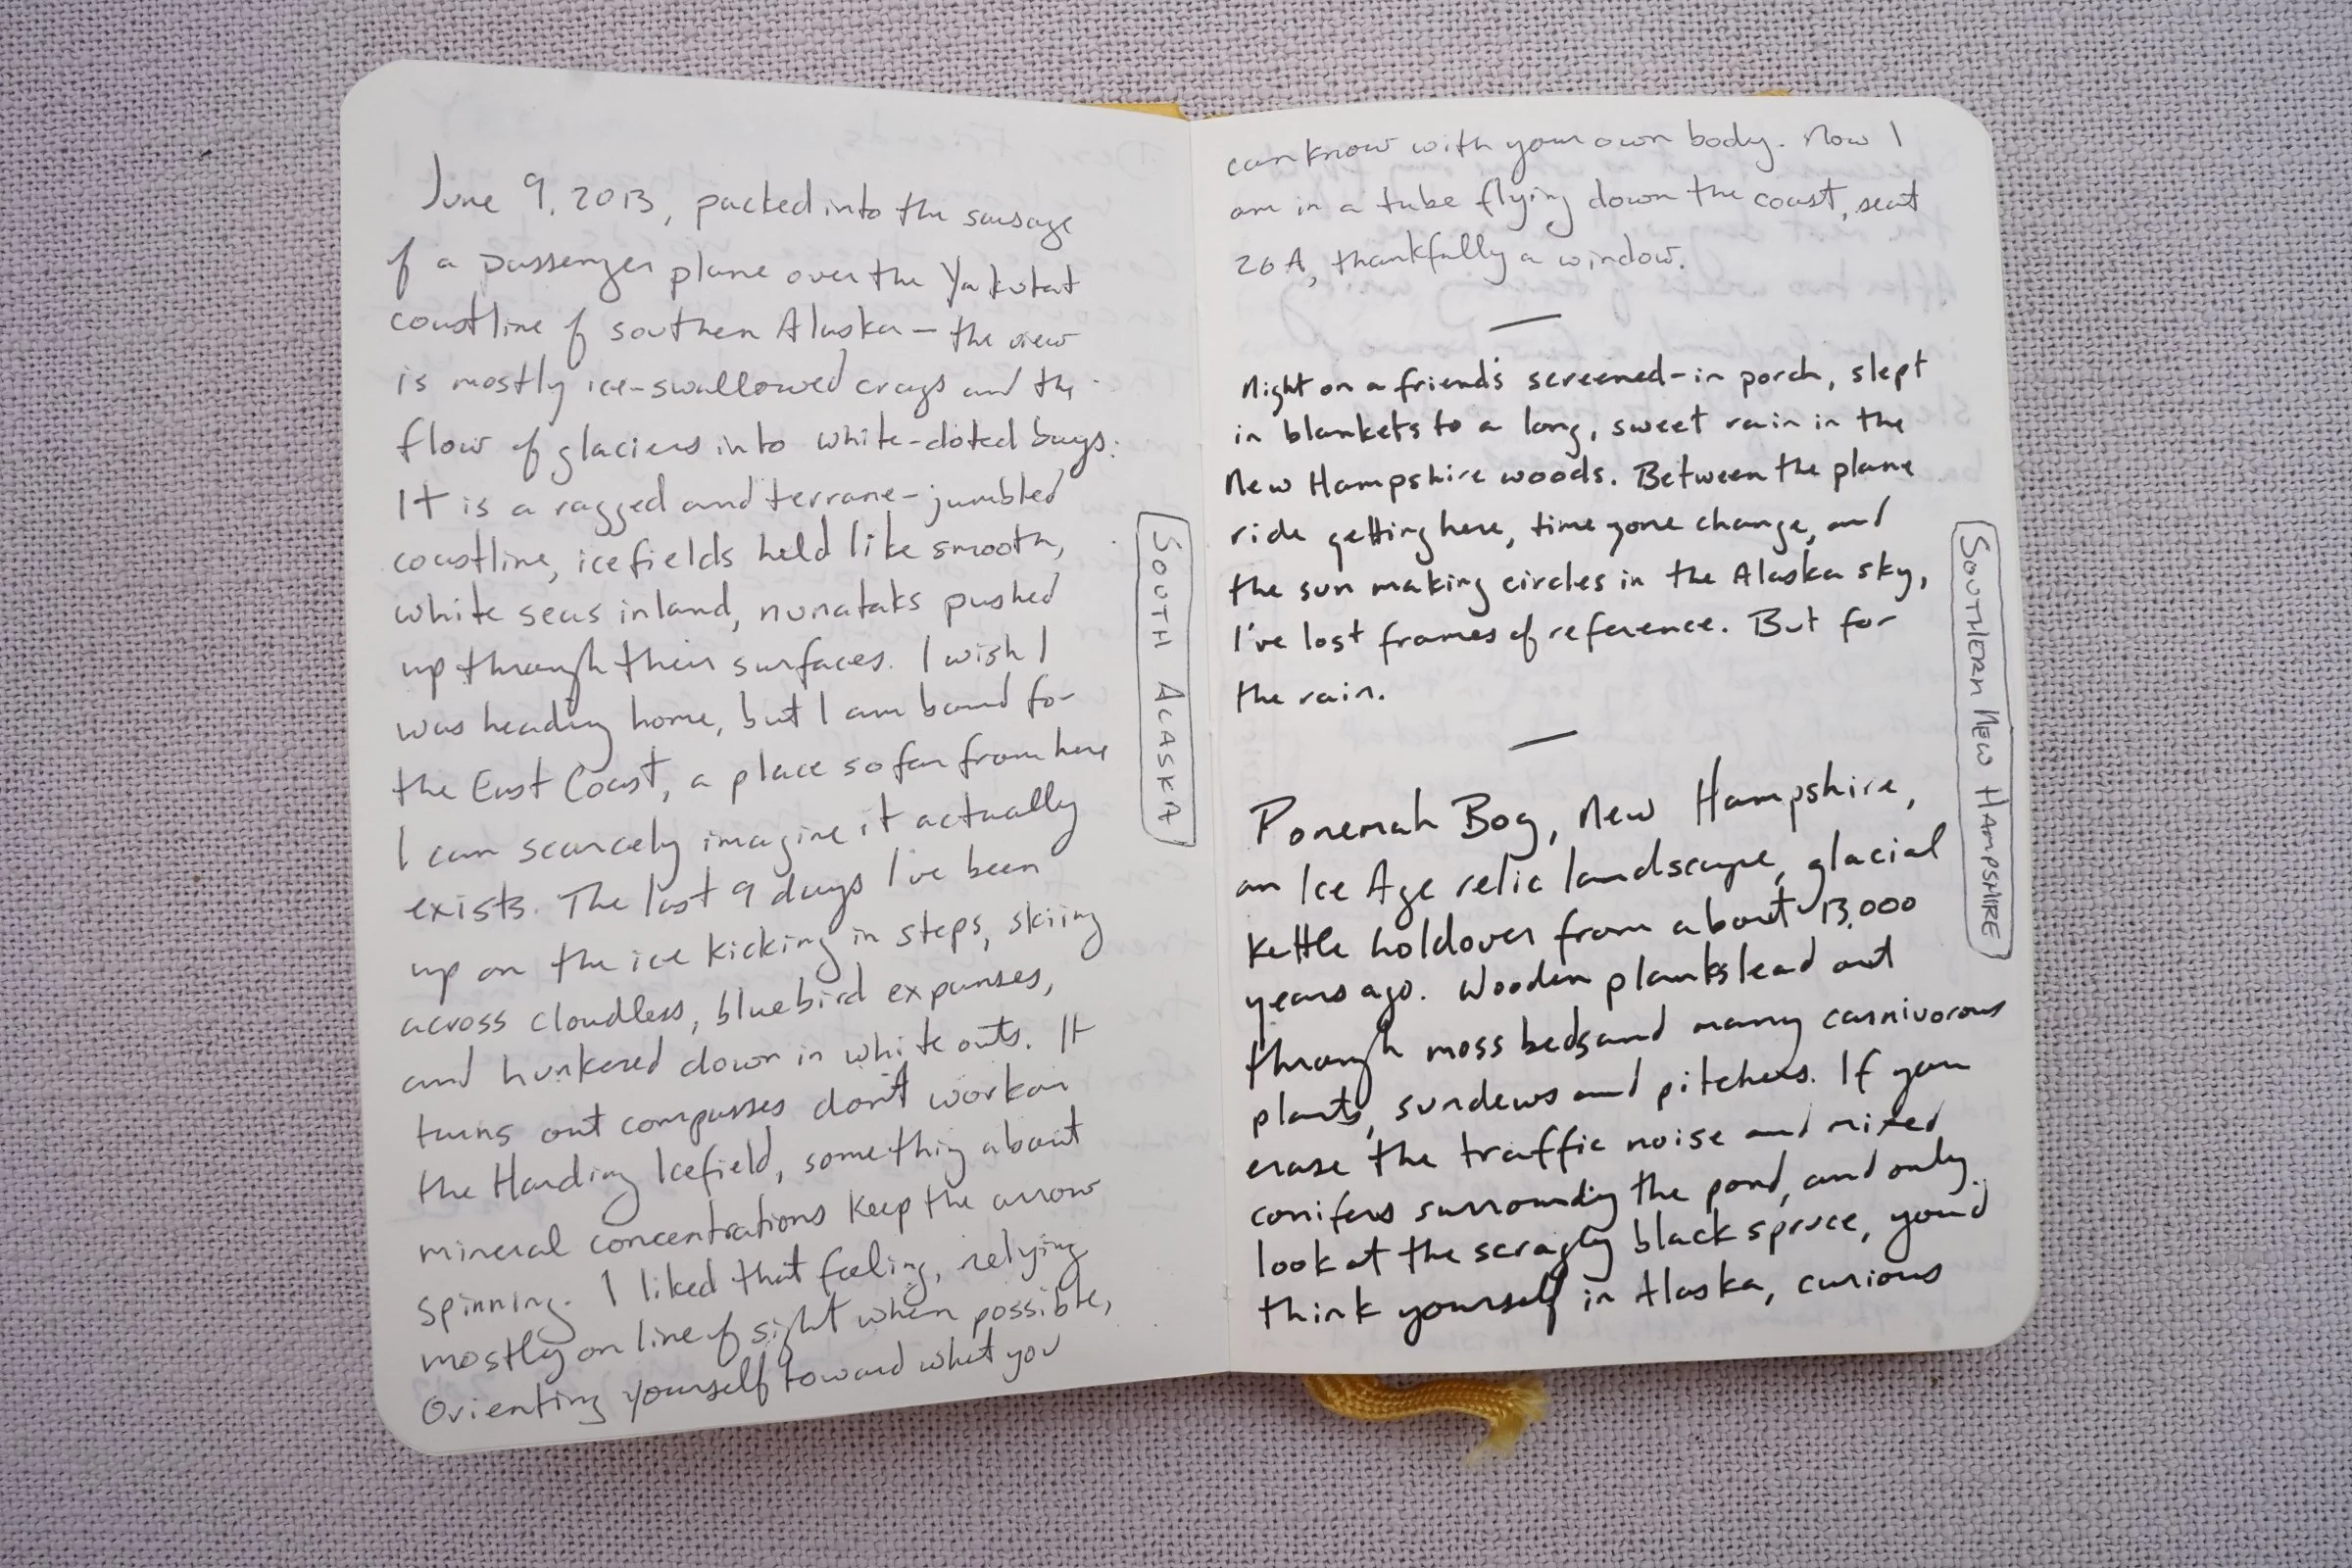 June 9, 2013, packed into the sausage
of a passenger plane over the Yakutat
coastline of southern Alaska — the view
is mostly ice-swallowed crags and the
flow of glaciers into white-doted bays.
It is a ragged and terrane-jumbled
coastline, icefields held like smooth,
white seas inland, nunataks pushed
up through their surfaces. I wish I
was heading home, but I am bound for
the East Coast, a place so far from here
I can scarcely imagine it actually
exists. The last 9 days I've been
up on the ice kicking in steps, skiing
across cloudless, bluebird expanses,
and hunkered down in whiteouts. It
turns out compasses don't work on
the Harding Icefield, something about
mineral concentrations keep the arrow
spinning. I liked that feeling, relying
mostly on line of sight when possible,
Orienting yourself toward what you
SOUTH ALASKA
can know with your own body. Now I
am in a tube flying down the coast, seat
26A, thankfully a window.
—
Night on a friend's screened-in porch, slept
in blankets to a long, sweet rain in the
New Hampshire woods. Between the plane
ride getting here, time zone change, and
the sun making circles in the Alaska sky,
I've lost frames of reference. But for
the rain.
—
Ponemah Bog, New Hampshire,
an Ice Age relic landscape, glacial
kettle holdover from about 13,000
years ago. Wooden planks lead out
through moss beds and many carnivorous
plants, sundews and pitchers. If you
erase the traffic noise and mixed
conifers surrounding the pond, and only
look at the scragly black spruce, you'd
think yourself in Alaska, curious
SOUTHERN NEW HAMPSHIRE